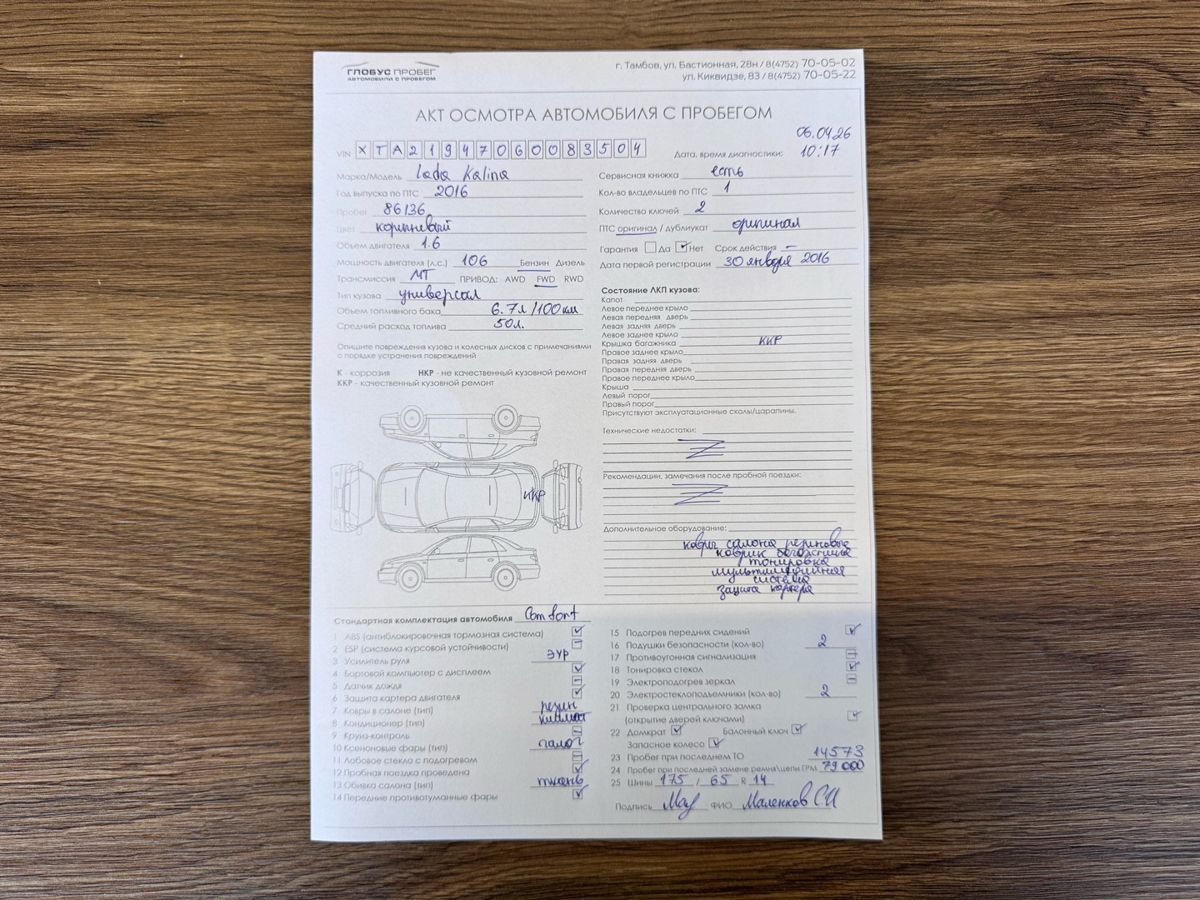 ГЛОБУС ПРОБЕГ
АВТОМОБИЛИ С ПРОБЕГОМ
г. Тамбов, ул. Бастионная, 28н / 8(4752) 70-05-02
ул. Киквидзе, 83 / 8(4752) 70-05-22
АКТ ОСМОТРА АВТОМОБИЛЯ С ПРОБЕГОМ
VIN XTA219470G0083504
Дата, время диагностики: 06.04.26 10:17
Марка/Модель Lada Kalina
Год выпуска по ПТС 2016
Пробег 86136
Цвет коричневый
Объем двигателя 1.6
Мощность двигателя (л.с.) 106 Бензин Дизель
Трансмиссия МТ ПРИВОД: AWD FWD RWD
Тип кузова универсал
Объем топливного бака 6.7л/100км
Средний расход топлива 50л.
Опишите повреждения кузова и колесных дисков с примечаниями
о порядке устранения повреждений
К - коррозия НКР - не качественный кузовной ремонт
ККР - качественный кузовной ремонт
ККР
Сервисная книжка есть
Кол-во владельцев по ПТС 1
Количество ключей 2
ПТС оригинал / дубликат оригинал
Гарантия Да Нет Срок действия –
Дата первой регистрации 30 января 2016
Состояние ЛКП кузова:
Капот
Левое переднее крыло
Левая передняя дверь
Левая задняя дверь
Левое заднее крыло
Крышка багажника ККР
Правое заднее крыло
Правая задняя дверь
Правая передняя дверь
Правое переднее крыло
Крыша
Левый порог
Правый порог
Присутствуют эксплуатационные сколы/царапины.
Технические недостатки:
Рекомендации, замечания после пробной поездки:
Дополнительное оборудование:
ковры салона резиновые
коврик багажника
тонировка
мультимедийная
система
защита картера
Стандартная комплектация автомобиля Comfort
1 ABS (антиблокировочная тормозная система)
2 ESP (система курсовой устойчивости)
3 Усилитель руля ЭУР
4 Бортовой компьютер с дисплеем
5 Датчик дождя
6 Защита картера двигателя
7 Ковры в салоне (тип) резин
8 Кондиционер (тип) климат
9 Круиз-контроль
10 Ксеноновые фары (тип) галог
11 Лобовое стекло с подогревом
12 Пробная поездка проведена
13 Обивка салона (тип) ткань
14 Передние противотуманные фары
15 Подогрев передних сидений
16 Подушки безопасности (кол-во) 2
17 Противоугонная сигнализация
18 Тонировка стекол
19 Электроподогрев зеркал
20 Электростеклоподъемники (кол-во) 2
21 Проверка центрального замка
(открытие дверей ключами)
22 Домкрат Балонный ключ
Запасное колесо
23 Пробег при последнем ТО 14573
24 Пробег при последней замене ремня\цепи ГРМ 79 000
25 Шины 175 / 65 R 14
Подпись ФИО Маленков С И